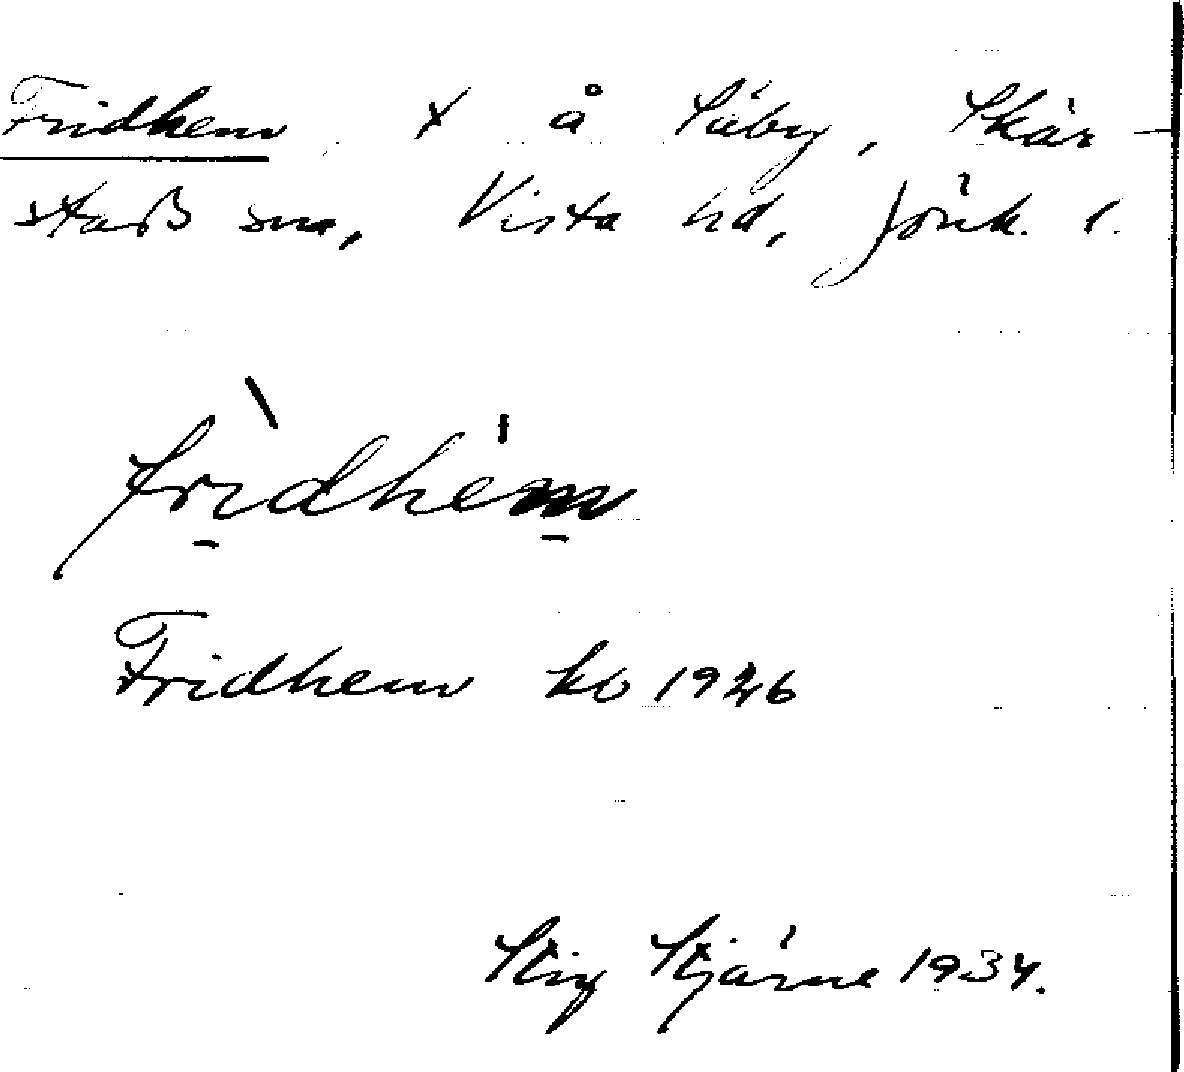 Fridhem x å Säby, Skär-
stads sn, Vista hd, Jönk. l.
frìdhém
Fridhem ko 1926
Stig Stjärne 1934.